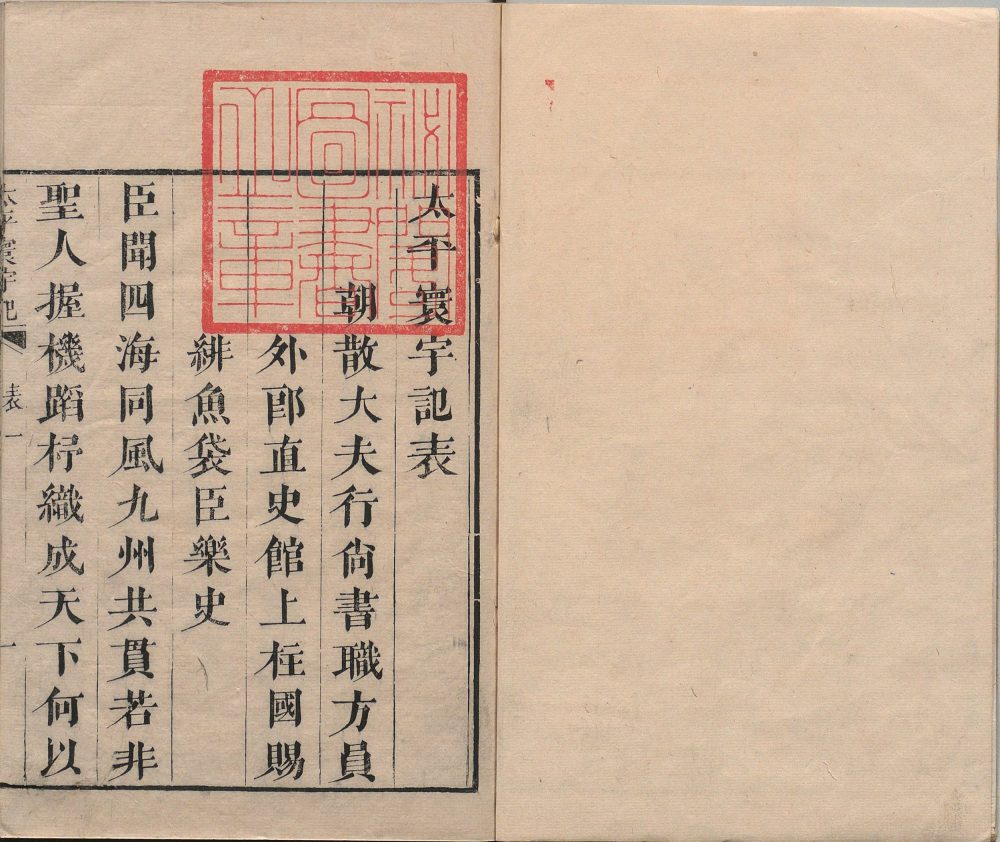 太平寰宇記表
朝散大夫行尙書職方員
外郎直史館上柱國賜
緋魚袋臣樂史
臣聞四海同風九州共貫若非
聖人握機蹈杼織成天下何以
太平寰宇記
表一
一
圖書
之章